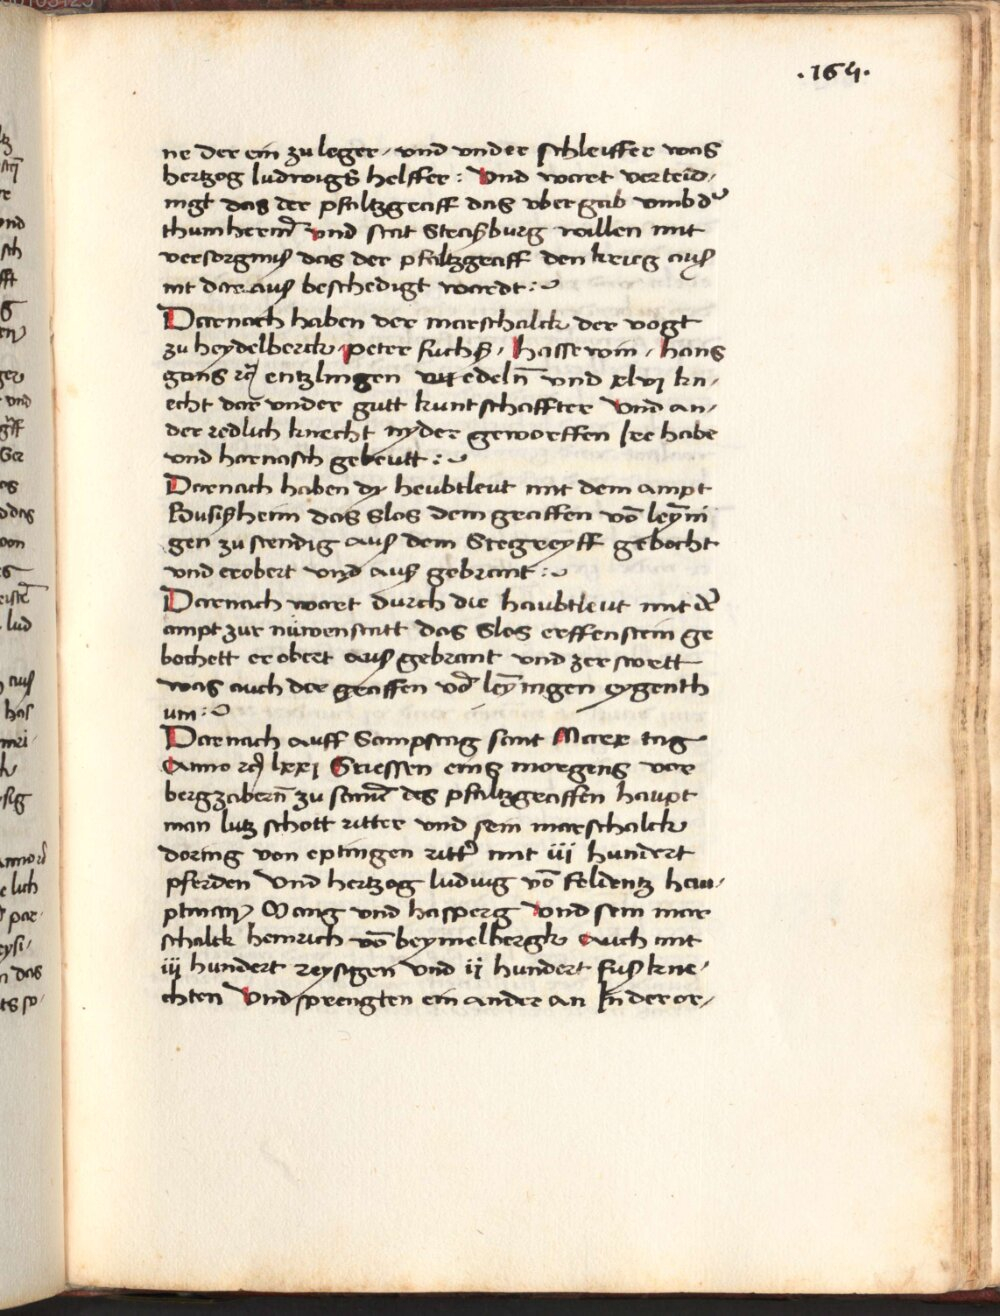 ·164·
ne der ein zu leger / vnd vnder schleiffer was
hertzog ludwigs helffer : Vnd wart verteid/
ingt das der pfaltzgraff das vbergab vmb der
thumhern vnd stat Straßburg willen mit
versorgniß das der pfaltzgraff den krieg auß
nit dar auß beschedigt wardt :
Darnach haben der marschalck der vogt
zu heydelberck / peter fuchß / hassewin / hans
gans entzlingen edeln vnd xlvj kn/
echt dar vnder gutt kuntschaffter Vnd an/
der redlich knecht nyder geworffen Ire habe
vnd harnasch gebeutt :
Darnach haben dy heubtleut mit dem ampt
das Slos dem graffen vō leyni
gen zu stendig auß dem Stegreyff gebocht
vnd erobert vnd auß gebrant :
Darnach wart durch die haubtleut mit der
ampt zur nüwenstatt das Slos erffenstein ge
bochett erobert auß gebrant vnd zerstortt
was auch der graffen leyningen eygenth
um :
Darnach auff Sampstag sant Marx tag
Anno lxxj Griessen eins morgens vor
bergzabern zu des pfaltzgraffen haupt
man lutz schott ritter vnd sein marschalck
doring von eptingen ritter mit iij hundert
pferden Vnd hertzog ludwig vō feldentz hau/
ptman Mang vnd hasperg Vnd sein mar
schalck heinrich vō beymelbergk Auch mit
iij hundert reysigen vnd ij hundert fuß kne/
chten Vnd sprengten ein ander an In der or/